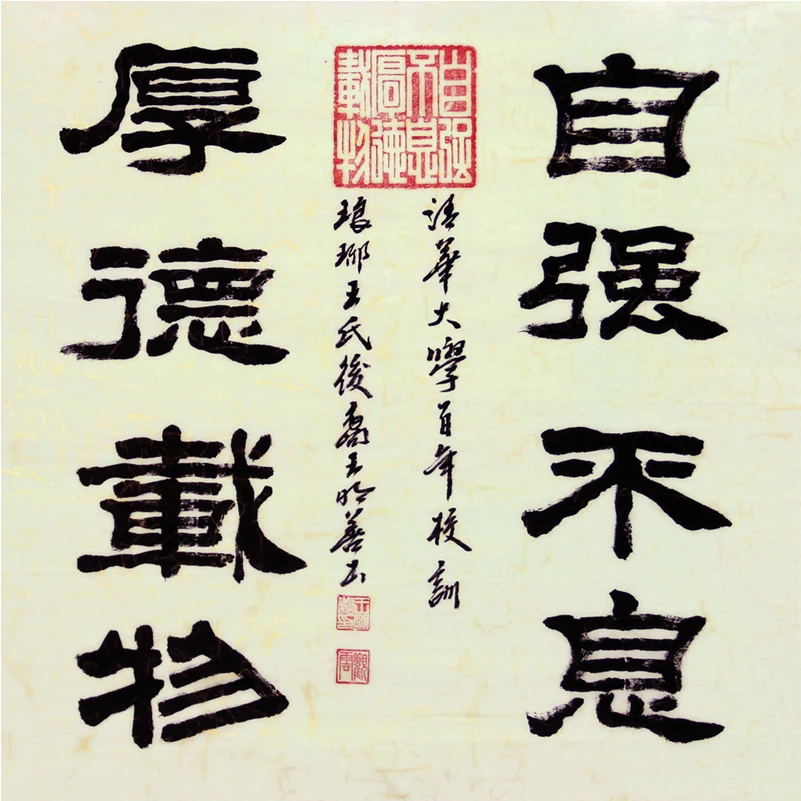 自强不息
自强
不息
厚德
載物
清華大學百年校訓
琅琊王氏後裔王明善书
厚德載物